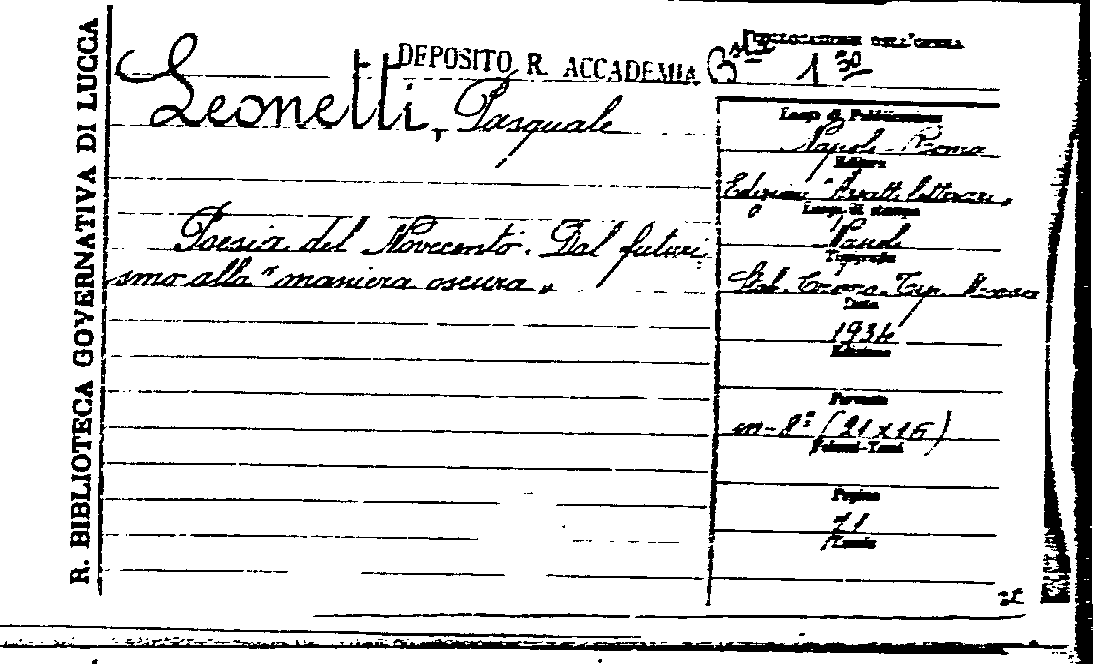 R. BIBLIOTECA GOVERNATIVA DI LUCCA
DEPOSITO R. ACCADEMIA
COLLOCAZIONE DELL'OPERA
1 30
Leonetti, Pasquale
Poesia del Novecento. Dal futuri
smo alla "maniera oscura"
Luogo di Pubblicazione
Napoli-Roma
Editore
Edizioni "Aratti letterari"
Luogo di stampa
Napoli
Tipografia
Stab. Tip.
Data
1934
Edizione
Formato
in-8° (21x15)
Volumi-Tomi
Pagine
71
Tavole